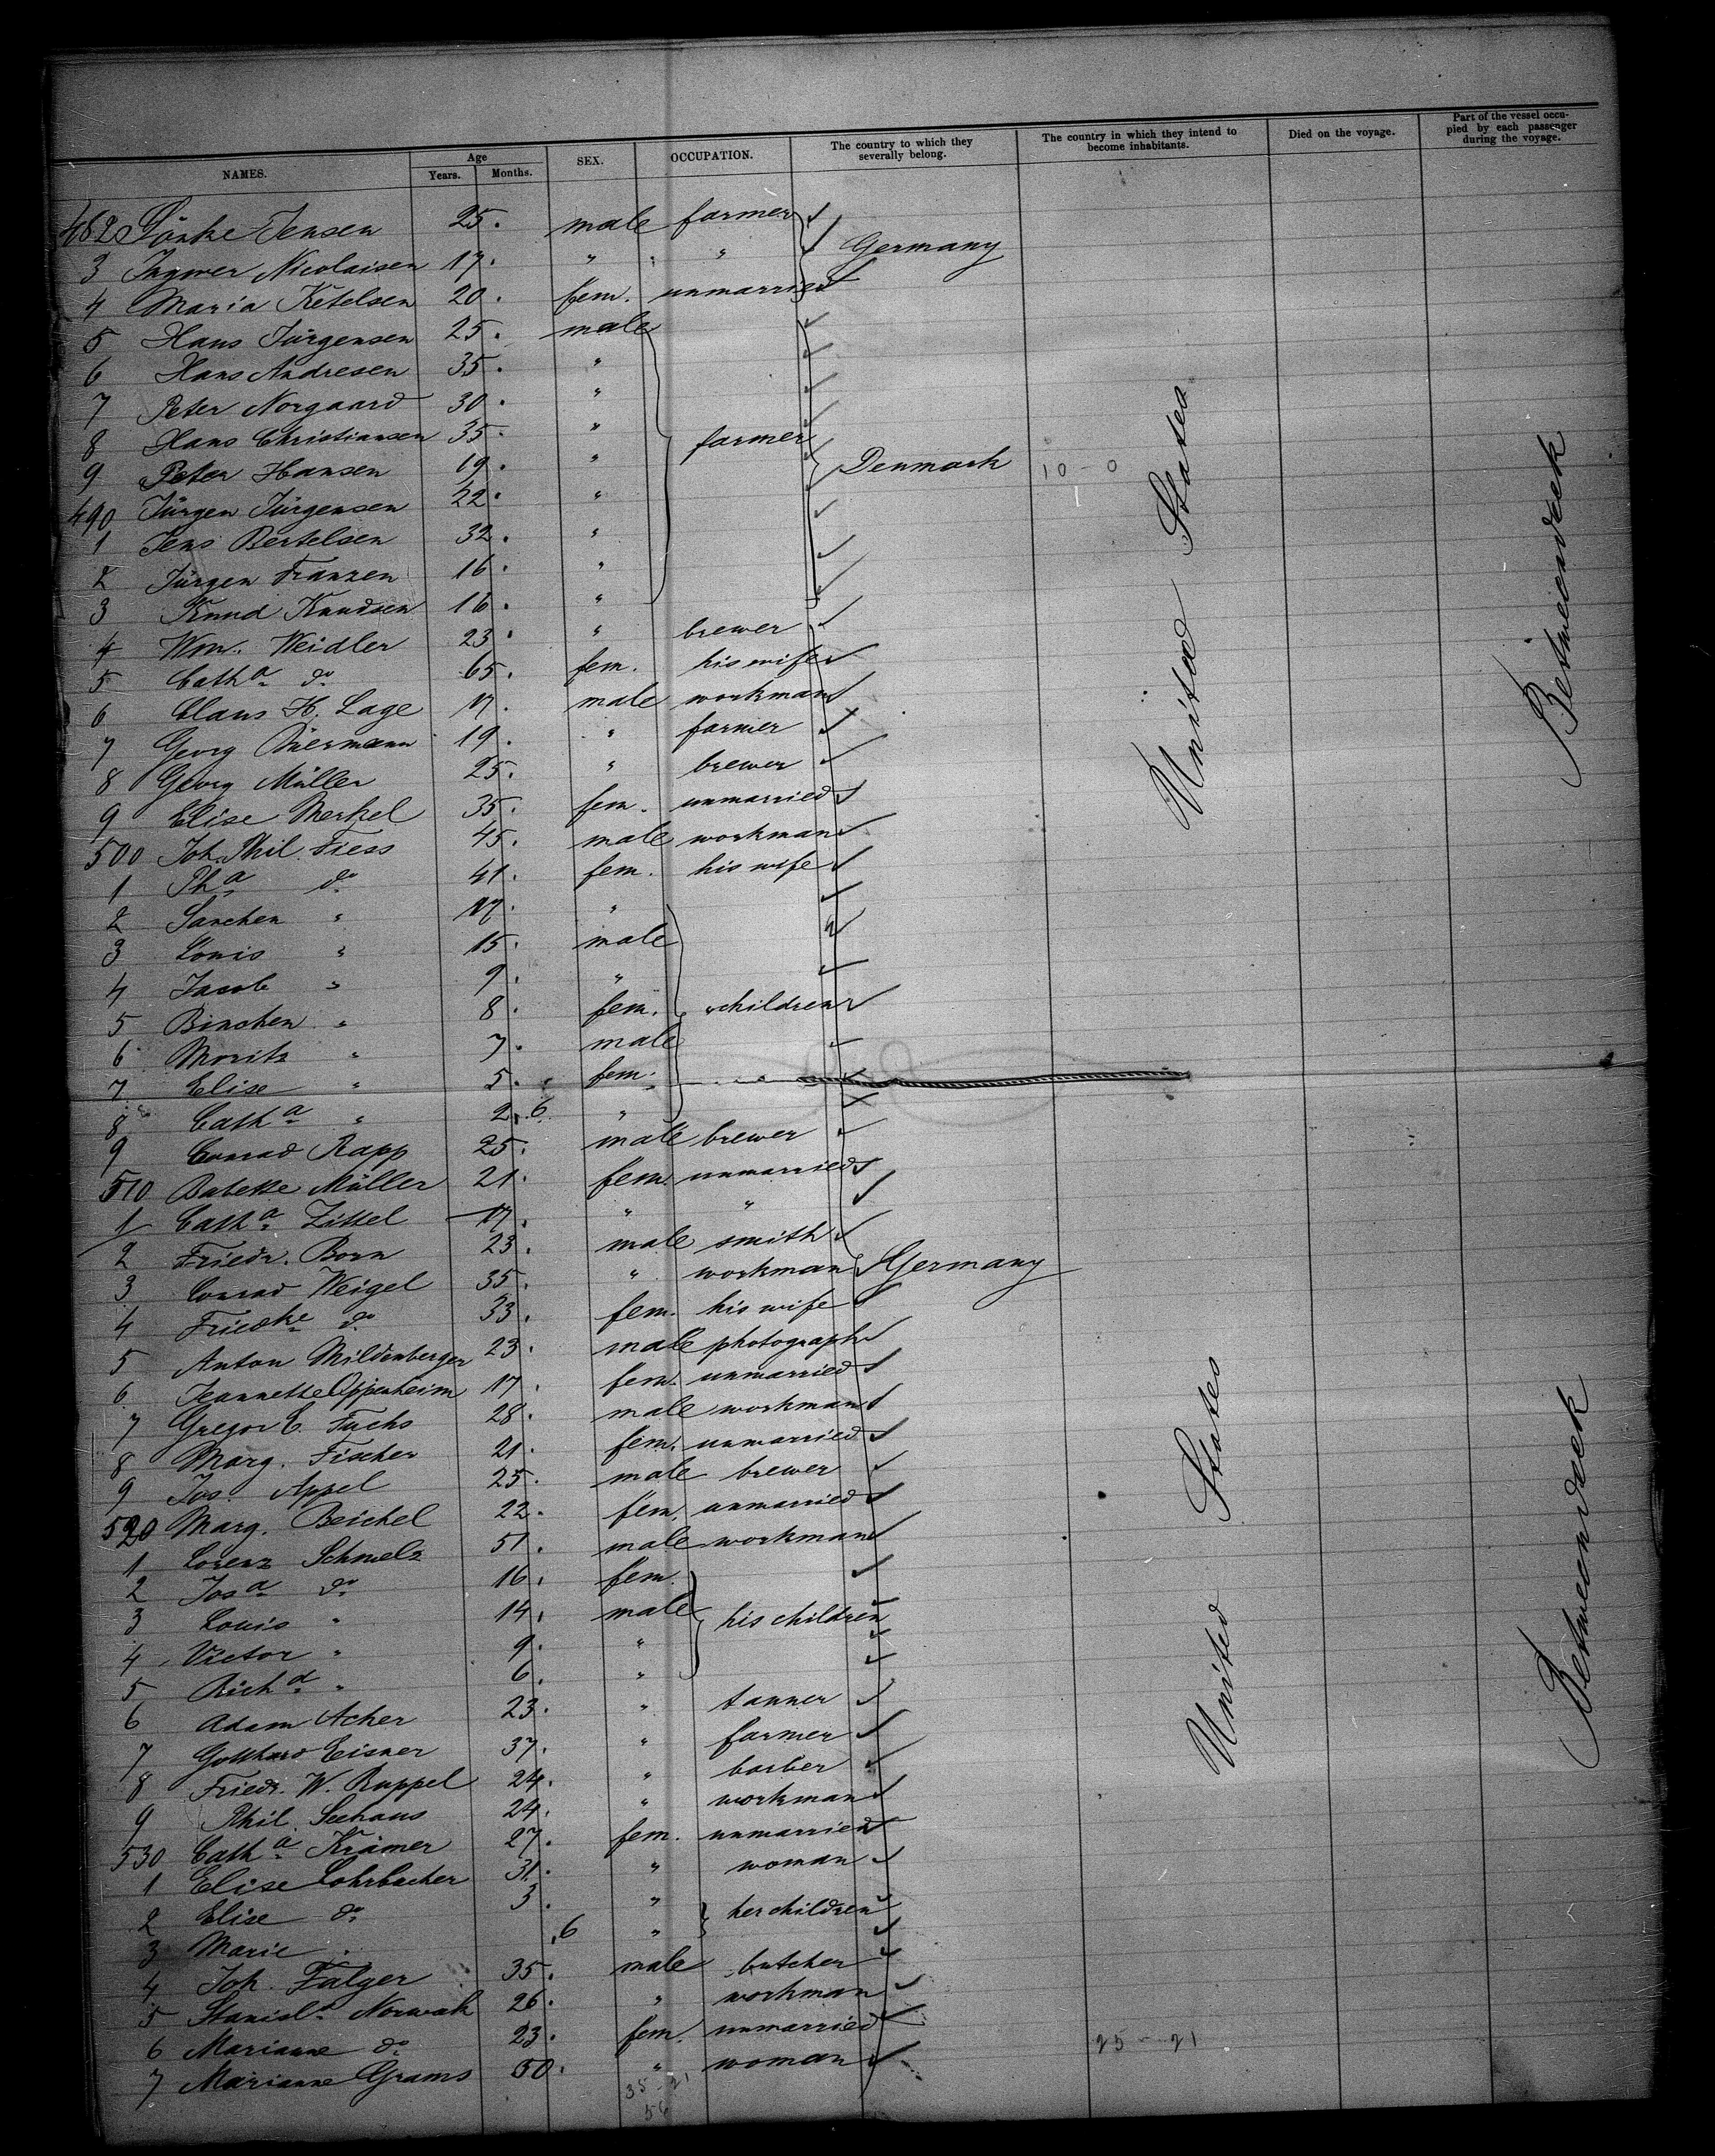 NAMES. Age Years. Months. SEX. OCCUPATION. The country to which they severally belong. The country in which they intend to become inhabitants. Died on the voyage. Part of the vessel occupied by each passenger during the voyage.
482 Sönke Jensen 25. male farmer
3 Ingwer Nicolaisen 17. " " Germany
4 Maria Ketelsen 20. fem. unmarried
5 Hans Jürgensen 25. male
6 Hans Andresen 35. "
7 Peter Norgaard 30. "
8 Hans Christiansen 35. " farmer
9 Peter Hansen 19. " Denmark 10-0
490 Jürgen Jürgensen 22. "
1 Jens Bertelsen 32. "
2 Jürgen Franzen 16. "
3 Knud Knudsen 16. "
4 Wm. Weidler 23. " brewer
5 Catha do 65. fem. his wife
6 Claus H. Lage 17. male workman
7 Georg Biermann 19. " farmer
8 Georg Müller 25. " brewer
9 Elise Merkel 35. fem. unmarried
500 Joh. Phil. Fiess 45. male workman
1 Pha do 41. fem. his wife
2 Sanchen " 17. "
3 Louis " 15. male
4 Jacob " 9. "
5 Binchen " 8. fem. children
6 Moritz " 7. male
7 Elise " 5. fem.
8 Catha " 2. 6. "
9 Conrad Rapp 25. male brewer
510 Babette Müller 21. fem. unmarried
1 Catha Zittel 17. " "
2 Friedr. Born 23. male smith
3 Conrad Weigel 35. " workman Germany
4 Friedke do 33. fem. his wife
5 Anton Mildenberger 23. male photograph
6 Jeannette Oppenheim 17. fem. unmarried
7 Gregor C. Fuchs 28. male workman
8 Marg. Fischer 21. fem. unmarried
9 Jos. Appel 25. male brewer
520 Marg. Beichel 22. fem. unmarried
1 Lorenz Schmelz 51. male workman
2 Josa do 16. fem.
3 Louis " 14. male his children
4 Victor " 9. "
5 Richd " 6. "
6 Adam Acher 23. " tanner
7 Gotthard Eisner 37. " farmer
8 Friedr. W. Ruppel 24. " barber
9 Phil. Seehaus 24. " workman
530 Catha Krämer 27. fem. unmarried
1 Elise Lohrbacher 31. " woman
2 Elise do 3. " her children
3 Marie . 6 "
4 Joh. Falger 35. male butcher
5 Stanisl. Norwak 26. " workman
6 Marianne do 23. fem. unmarried
7 Marianne Grams 50. " woman
25-21
35-21
56
United States
Betweendeck
United States
Betweendeck